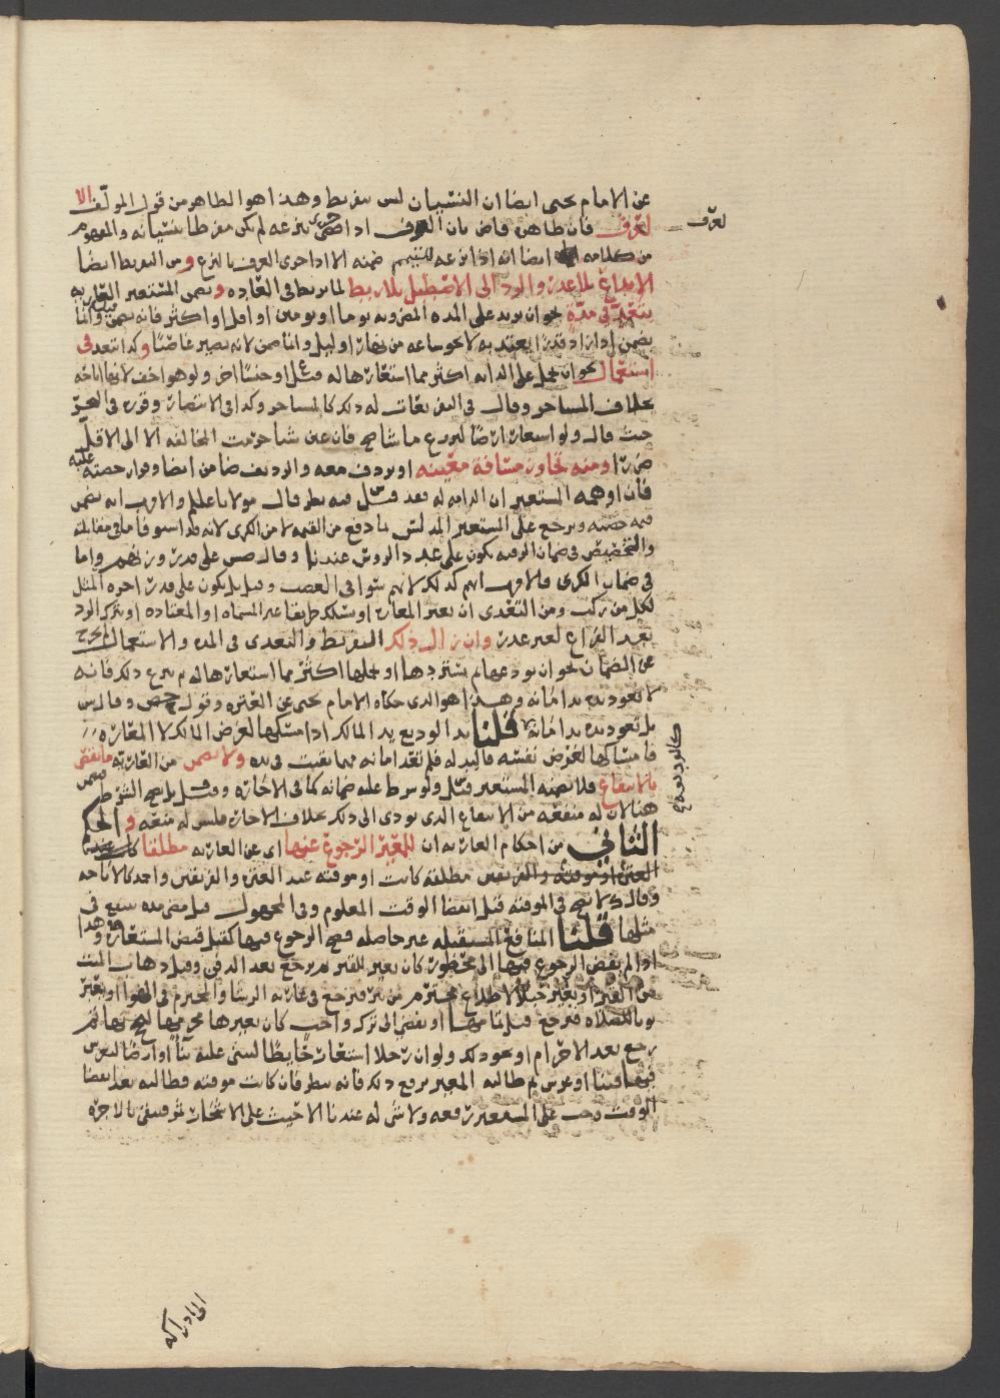 عن الامام يحيى ايضا ان النسيان ليس بتفريط وهذا هو الظاهر من قول المولف الا
لعرف فان ظاهره قاض بان العرف اذا جرى بنزعه لم يكن مفرطا بنسيانه والمفهوم
لعرف
من كلامه ايضا انه اذا نزعه ضمنه الا اذا جرى العرف بالنزع ومن التفريط ايضا
الايداع بلا عذر والرد الى الاصطبل بلا ربط لما يربط في العاده ويضمن المستعير العاريه
بتعد في مدة نحو ان يزيد على المده المضروبه يوما او يومين او اقل او اكثر فانه يضمن وانما
يضمن اذا زاد قدرا يعتد به لا نحو ساعه من نهار او ليل وانما ضمن لانه يصير غاصبا وكذا تعد في
استعمال نحو ان يحمل على الدابه اكثر مما استعارها له مثل او جنسا اخر ولو هو اخف لانها اباحه
بخلاف المستاجر وقال في التفريعات له ذلك كالمستاجر وكذا في الانتصار وقرره في البحر
حيث قال ولو استعار ارضا ليزرع ما شا صح فان عين شيا حرمت المخالفه الا الى الاقل
ضررا ومنه تجاوز مسافة معينه او يردف معه والرديف ضامن ايضا وقرار حصته عليه
فان اوهمه المستعير ان الدابه له فقد قيل فيه نظر قال مولانا عليلم والاقرب انه يضمن
قيمه حصته ويرجع على المستعير المدلس بما دفع من القيمه لا من الكرى لانه قد استوفا ما في مقابلته
والتحصيص في ضمان الرقبه يكون على عدد الروس عندنا وقال على قدر وزنهم واما
في ضمان الكرى فالاقرب انهم كذلك لانهم سوا في الغصب وقيل بل يكون على قدر اجره المثل
لكل من ركب ومن التعدي ان يعير المعار او يسلك طريقا غير المسماه او المعتاده او يترك الرد
بعد الفراغ لغير عذر وان زال ذلك التفريط والتعدي في المده والاستعمال لم يخرج
عن الضمان نحو ان يودعها ثم يستردها او يحملها اكثر مما استعارها له ثم ينزع ذلك فانه
لا تعود يده يد امانه وهذا هو الذي حكاه الامام يحيى عن العتره وقول وقال
بل تعود يده يد امانه قلنا يد الوديع يد المالك اذا مسكها لغرض المالك لا المعاره
فامساكها لغرض نفسه فاليد له فلم تعد امانه مهما بقيت في يده ولا يضمن من العاريه ما ينقص
بالانتفاع فلا يضمنه المستعير قيل ولو شرط عليه ضمانه كما في الاجاره وقيل بل يصح الشرط
هنا لان له منفعه من الانتفاع الذي يودي الى ذلك بخلاف الاجاره فليس له منعه والحكم
الثاني من احكام العاريه ان للمعير الرجوع عنها اي عن العاريه مطلقا
العتره والفريقين مطلقه كانت او موقته عند العتره والفريقين واحد كالاباحه
وقال لا يصح في الموقته قبل انقضا الوقت المعلوم وفي المجهول قبل مضي مده ينتفع في
مثلها قلنا المنافع المستقبله غير حاصله فصح الرجوع فيها كقبل قبض المستعار وهذا
اذا لم يقتض الرجوع فيها الى محظور كان يعير للقبر ثم يرجع بعد الدفن وقبل ذهاب الميت
من القبر او يعير حبلا لاطلاع محترم من بئر فيرجع في عاريه الرشا والمحترم في الهوا او يعير
ثوبا للصلاه فيرجع قبل تمامها او يقتضي الى ترك واجب كان يعيرها محرميها ليحج بها ثم
رجع بعد الاحرام او نحو ذلك ولو ان رجلا استعار حايطا ليبني عليه بنا او ارضا ليغرس
فيها فبنا او غرس ثم طالبه المعير برفع ذلك فانه ينظر فان كانت موقته فطالبه بعد انقضا
الوقت وجب على المستعير رفعه ولا شي له عندنا الا حيث على الاشجار ثمر فيبقى بالاجره